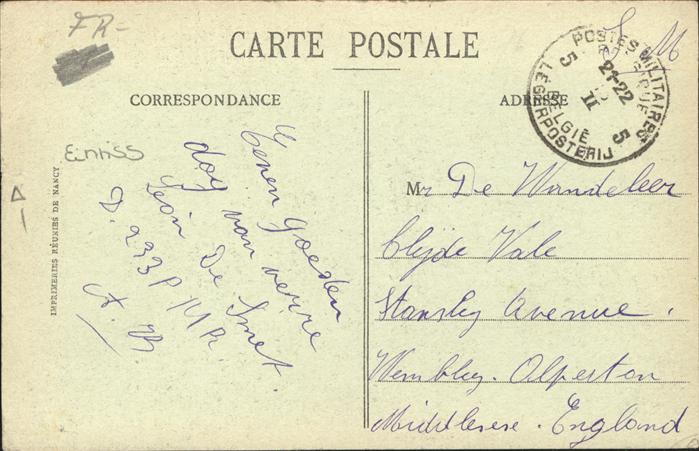 FR-
CARTE POSTALE
CORRESPONDANCE
ADRESSE
S.M
POSTES MILITAIRES
BELGIQUE
21-22
5 II
5
BELGIE
LEGERPOSTERIJ
Eenen goeden
dag van verre
Leon De Smet.
D. 233 P/M R.
A. B.
IMPRIMERIES RÉUNIES DE NANCY
Mr De Wandeleer
Clyde Vale
Stanley Avenue.
Wembley. Alperton
Middlesese. England